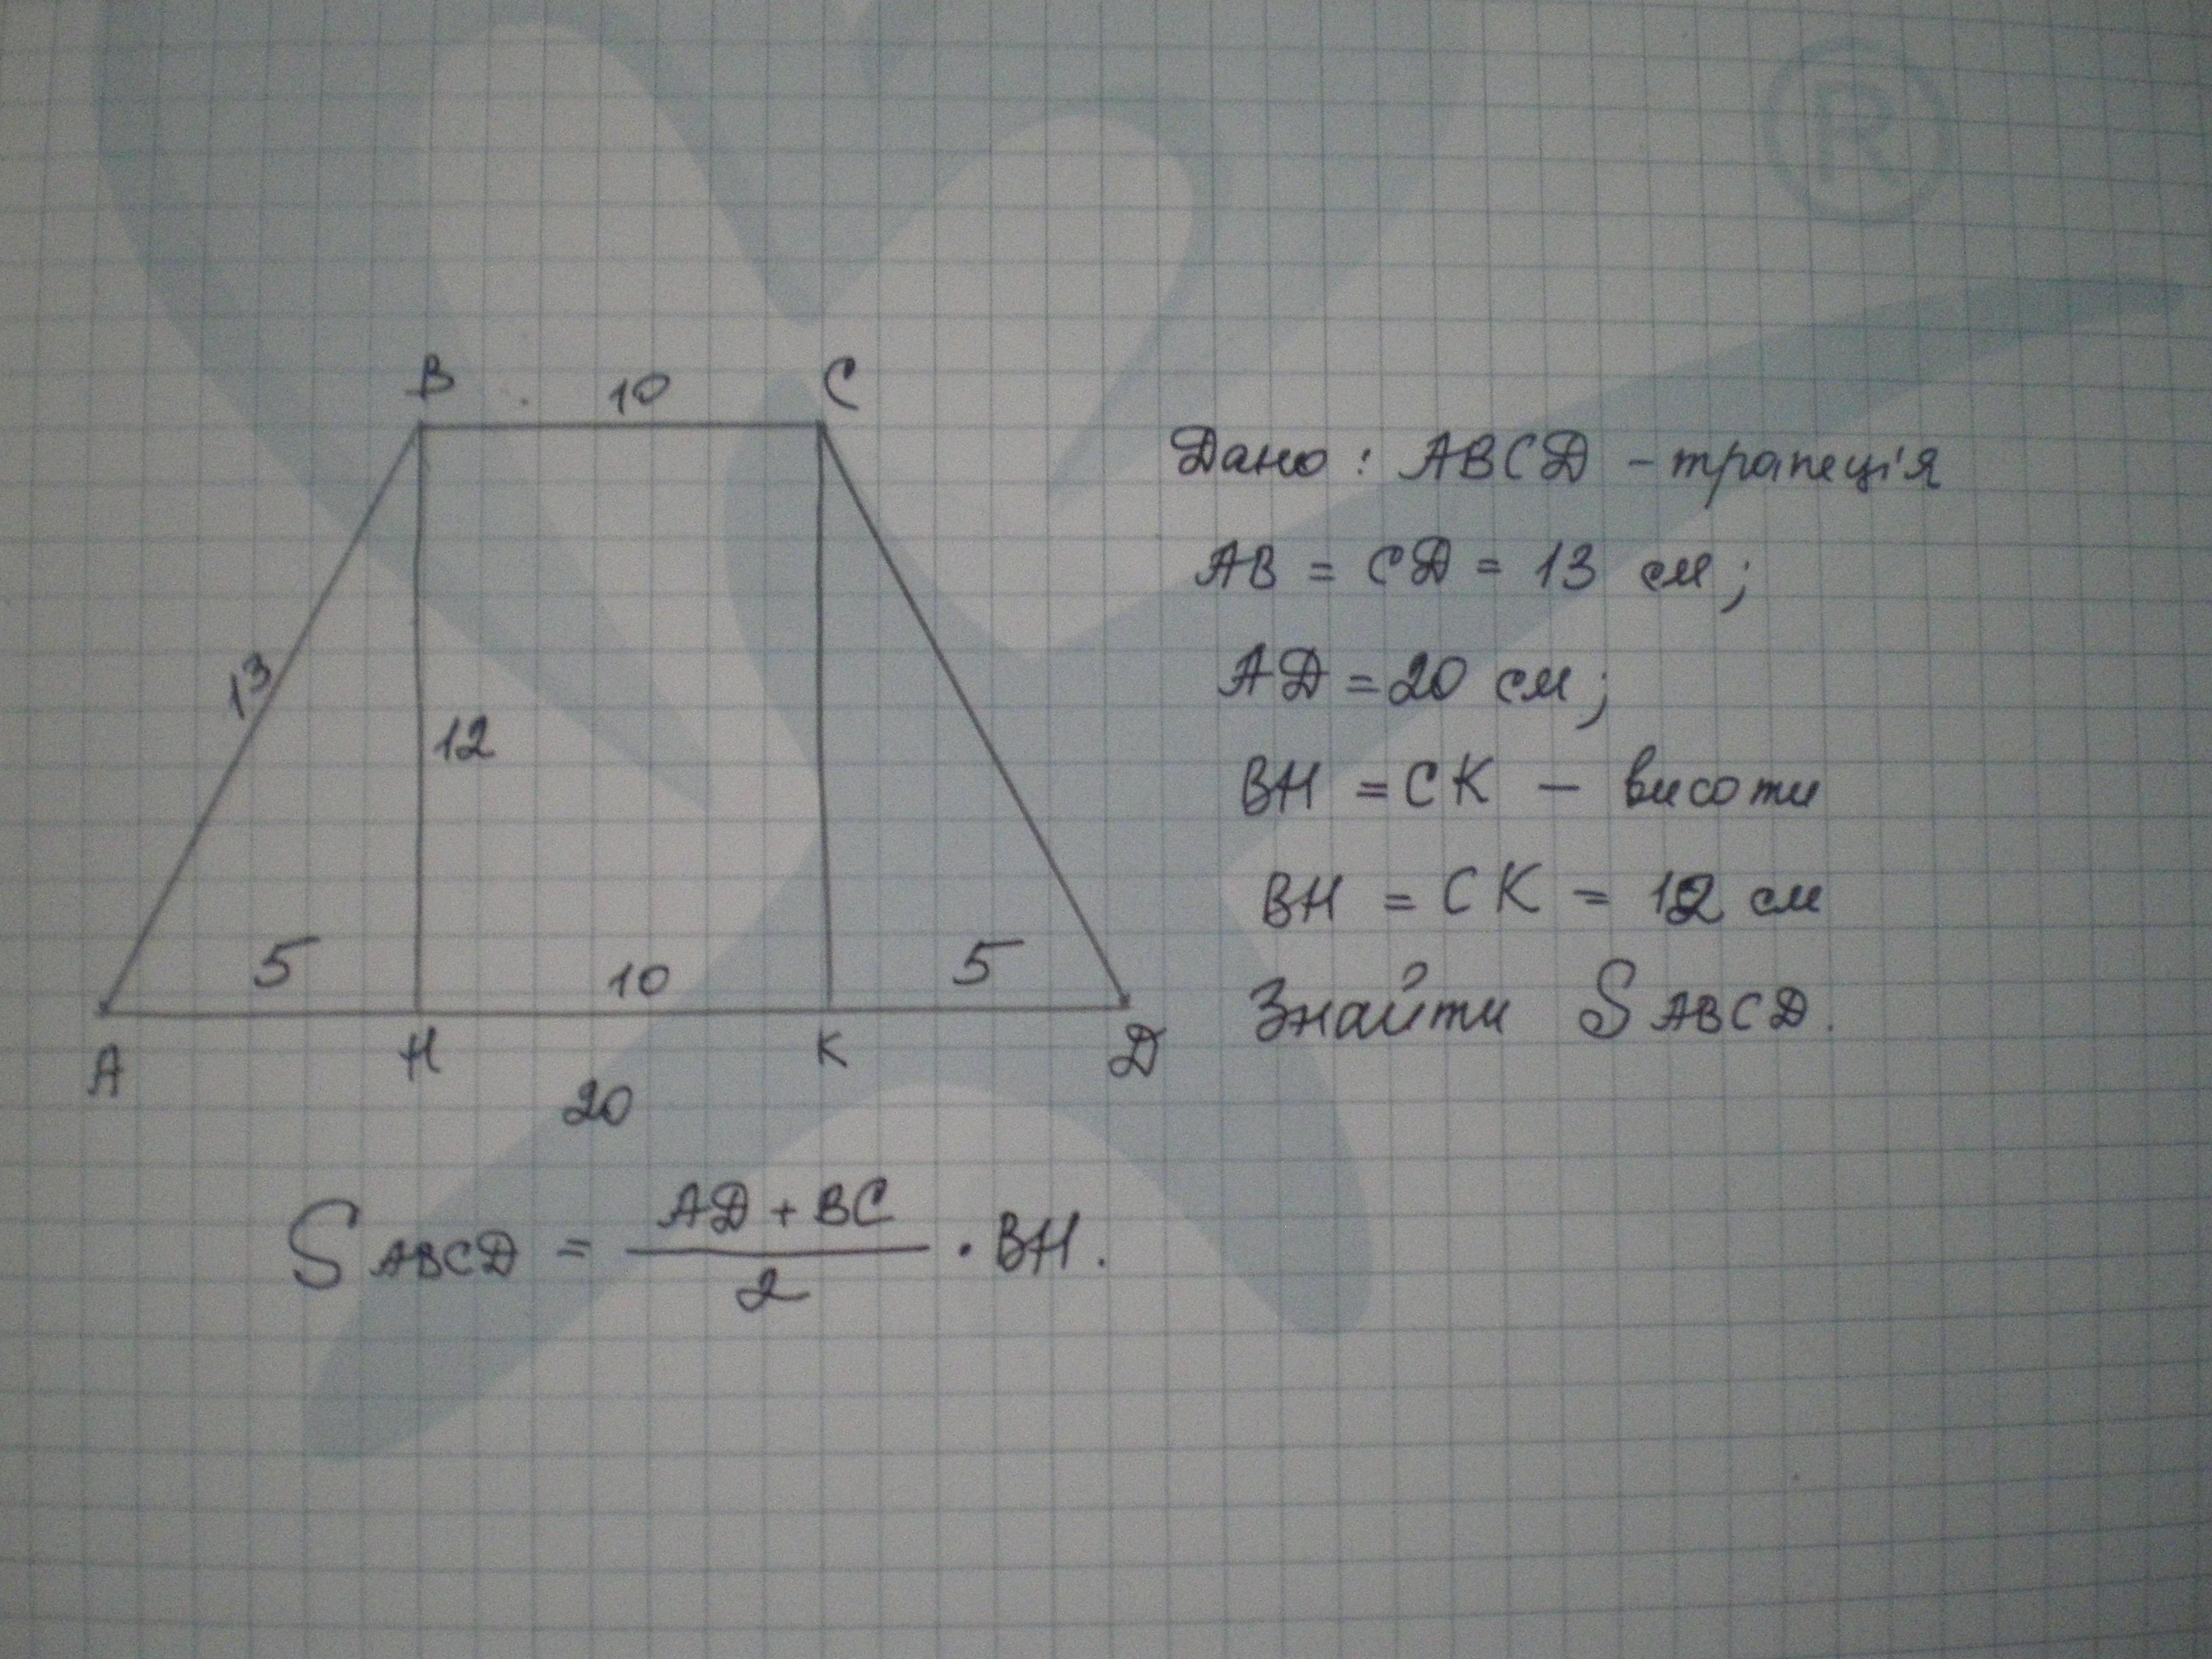 ®
B 10 C
Дано: ABCD - трапеція
AB = CD = 13 см;
13
AD = 20 см;
12
BH = CK - висоти
BH = CK = 12 см
5 10 5
Знайти S ABCD.
A H K D
20
S ABCD = AD + BC / 2 · BH.